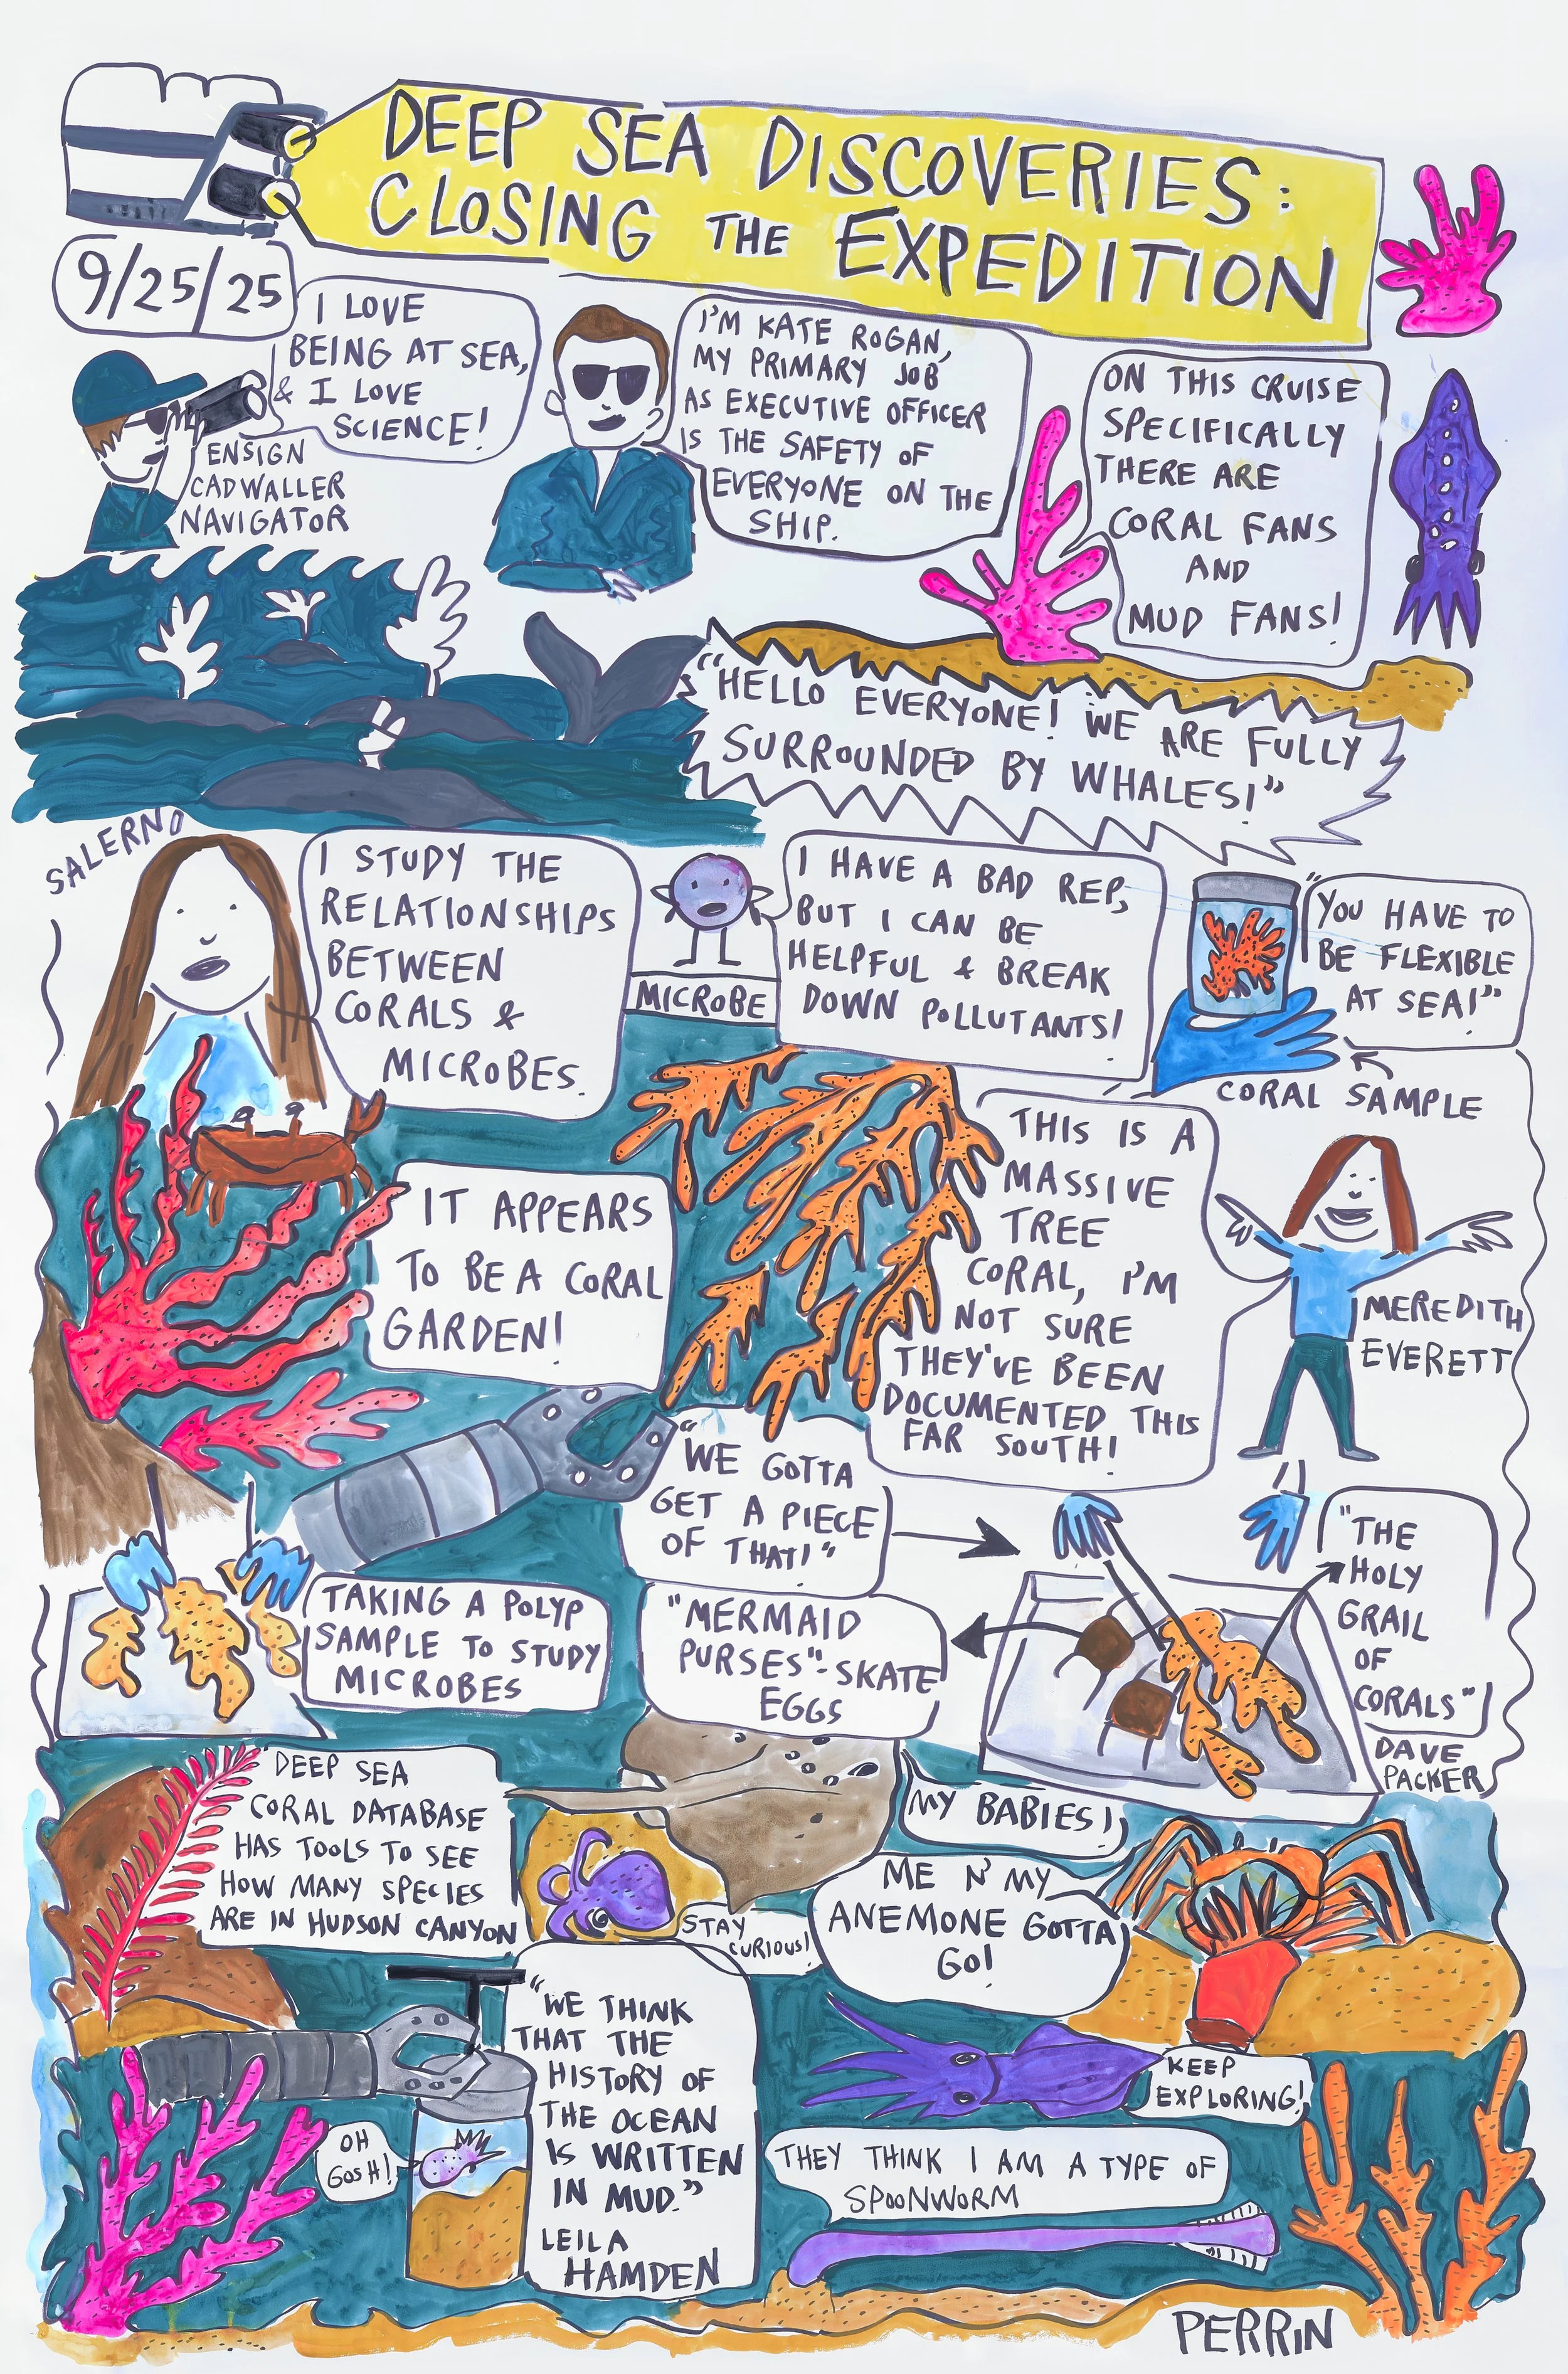 DEEP SEA DISCOVERIES:
CLOSING THE EXPEDITION
9/25/25
I LOVE
BEING AT SEA,
& I LOVE
SCIENCE!
ENSIGN
CADWALLER
NAVIGATOR
I'M KATE ROGAN,
MY PRIMARY JOB
AS EXECUTIVE OFFICER
IS THE SAFETY OF
EVERYONE ON THE
SHIP.
ON THIS CRUISE
SPECIFICALLY
THERE ARE
CORAL FANS
AND
MUD FANS!
"HELLO EVERYONE! WE ARE FULLY
SURROUNDED BY WHALES!"
SALERNO
I STUDY THE
RELATIONSHIPS
BETWEEN
CORALS &
MICROBES.
MICROBE
I HAVE A BAD REP,
BUT I CAN BE
HELPFUL & BREAK
DOWN POLLUTANTS!
"YOU HAVE TO
BE FLEXIBLE
AT SEA!"
CORAL SAMPLE
IT APPEARS
TO BE A CORAL
GARDEN!
THIS IS A
MASSIVE
TREE
CORAL, I'M
NOT SURE
THEY'VE BEEN
DOCUMENTED THIS
FAR SOUTH!
MEREDITH
EVERETT
"WE GOTTA
GET A PIECE
OF THAT!"
TAKING A POLYP
SAMPLE TO STUDY
MICROBES
"MERMAID
PURSES"-SKATE
EGGS
"THE
HOLY
GRAIL
OF
CORALS"
DAVE
PACKER
"DEEP SEA
CORAL DATABASE
HAS TOOLS TO SEE
HOW MANY SPECIES
ARE IN HUDSON CANYON
MY BABIES!
STAY
CURIOUS!
ME N' MY
ANEMONE GOTTA
GO!
"WE THINK
THAT THE
HISTORY OF
THE OCEAN
IS WRITTEN
IN MUD."
LEILA
HAMDEN
OH
GOSH!
KEEP
EXPLORING!
THEY THINK I AM A TYPE OF
SPOONWORM
PERRIN